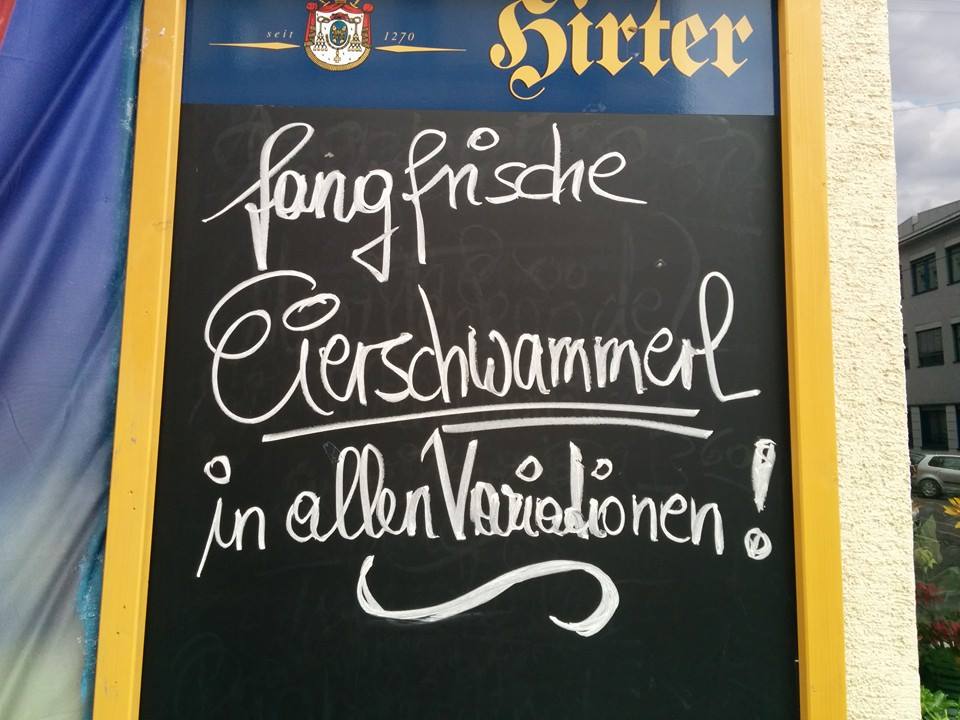 seit 1270
Hirter
fangfrische
Eierschwammerl
in allen Variationen!